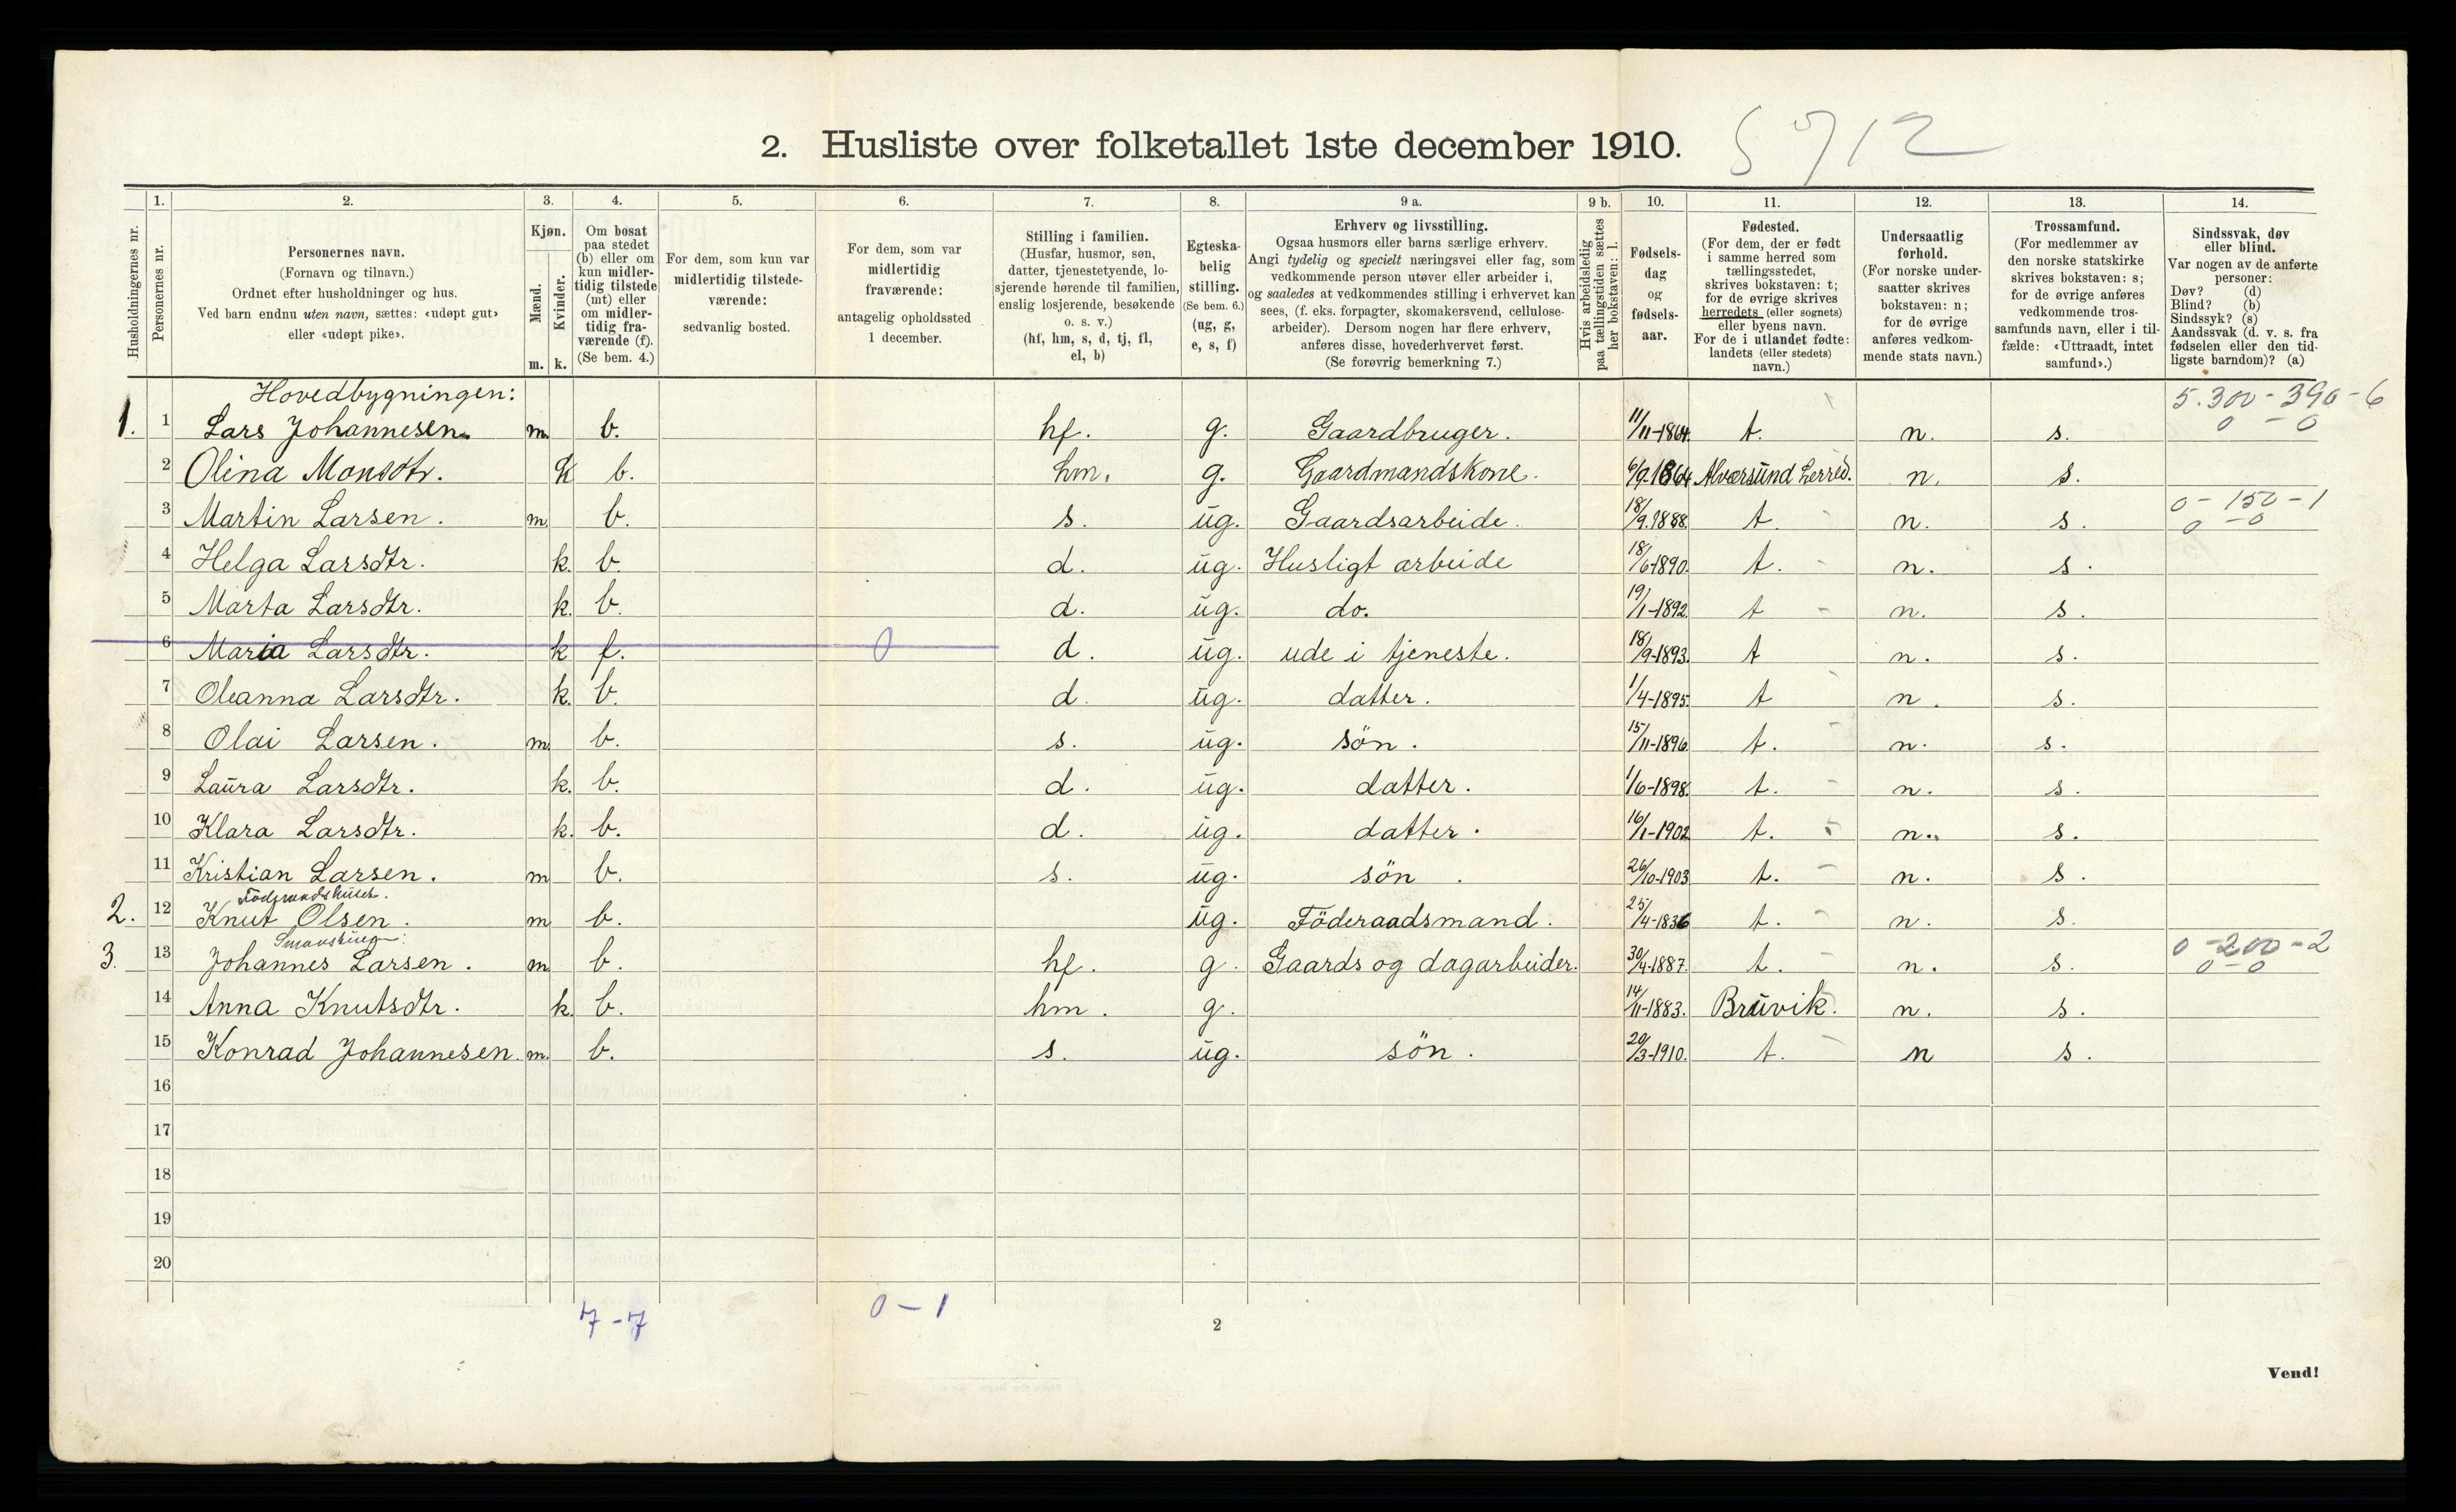 2. Husliste over folketallet 1ste december 1910.
Husholdningernes nr.
1.
Personernes nr.
2.
Personernes navn.
(Fornavn og tilnavn.)
Ordnet efter husholdninger og hus.
Ved barn endnu uten navn, sættes: «udøpt gut»
eller «udøpt pike».
3.
Kjøn.
Mænd.
Kvinder.
m.
k.
4.
Om bosat
paa stedet
(b) eller om
kun midler-
tidig tilstede
(mt) eller
om midler-
tidig fra-
værende (f).
(Se bem. 4.)
5.
For dem, som kun var
midlertidig tilstede-
værende:
sedvanlig bosted.
6.
For dem, som var
midlertidig
fraværende:
antagelig opholdssted
1 december.
7.
Stilling i familien.
(Husfar, husmor, søn,
datter, tjenestetyende, lo-
sjerende hørende til familien,
enslig losjerende, besøkende
o. s. v.)
(hf, hm, s, d, tj, fl,
el, b)
8.
Egteska-
belig
stilling.
(Se bem. 6.)
(ug, g,
e, s, f)
9 a.
Erhverv og livsstilling.
Ogsaa husmors eller barns særlige erhverv.
Angi tydelig og specielt næringsvei eller fag, som
vedkommende person utøver eller arbeider i,
og saaledes at vedkommendes stilling i erhvervet kan
sees, (f. eks. forpagter, skomakersvend, cellulose-
arbeider). Dersom nogen har flere erhverv,
anføres disse, hovederhvervet først.
(Se forøvrig bemerkning 7.)
9 b.
Hvis arbeidsledig
paa tællingstiden sættes
her bokstaven: l.
10.
Fødsels-
dag
og
fødsels-
aar.
11.
Fødested.
(For dem, der er født
i samme herred som
tællingsstedet,
skrives bokstaven: t;
for de øvrige skrives
herredets (eller sognets)
eller byens navn.
For de i utlandet fødte:
landets (eller stedets)
navn.)
12.
Undersaatlig
forhold.
(For norske under-
saatter skrives
bokstaven: n;
for de øvrige
anføres vedkom-
mende stats navn.)
13.
Trossamfund.
(For medlemmer av
den norske statskirke
skrives bokstaven: s;
for de øvrige anføres
vedkommende tros-
samfunds navn, eller i til-
fælde: «Uttraadt, intet
samfund».)
14.
Sindssvak, døv
eller blind.
Var nogen av de anførte
personer:
Døv? (d)
Blind? (b)
Sindssyk? (s)
Aandssvak (d. v. s. fra
fødselen eller den tid-
ligste barndom)? (a)
Hovedbygningen:
5.300-390-6
1. 1 Lars Johannesen. m. b. hf. g. Gaardbruger. 11/11-1864. t. n. s. 0 - 0
2 Olina Monsdtr. k b. hm. g. Gaardmandskone. 6/9-1864 Alversund herred. n. s.
0-150-1
3 Martin Larsen. m. b. s. ug. Gaardsarbeide. 18/9.1888. t. n. s. 0-0
4 Helga Larsdtr. k. b. d. ug. Husligt arbeide 18/6-1890. t. n. s.
5 Marta Larsdtr. k. b. d. ug. do. 19/1-1892. t n. s.
6 Maria Larsdtr. k f. 0 d. ug. ude i tjeneste. 18/9-1893. t n. s.
7 Oleanna Larsdtr. k. b. d. ug. datter. 1/4-1895. t n. s.
8 Olai Larsen. m. b. s. ug. sön. 15/11-1896. t. n. s.
9 Laura Larsdtr. k. b. d. ug. datter. 1/6-1898. t. n. s.
10 Klara Larsdtr. k. b. d. ug. datter. 16/1-1902 t. n. s.
11 Kristian Larsen. m b. s. ug. sön. 26/10-1903 t. n. s.
2. 12 Knut Olsen. m b. ug. Föderaadsmand. 25/4-1836 t. n. s.
0-200-2
3. 13 Johannes Larsen. m. b. hf. g. Gaards og dagarbeider. 30/4-1887. t. n. s. 0-0
14 Anna Knutsdtr. k. b. hm. g. 14/11-1883. Bruvik. n. s.
15 Konrad Johannesen. m. b. s. ug. sön. 20/3-1910. t. n s.
16
17
18
19
20
7-7 0-1
2
Vend!